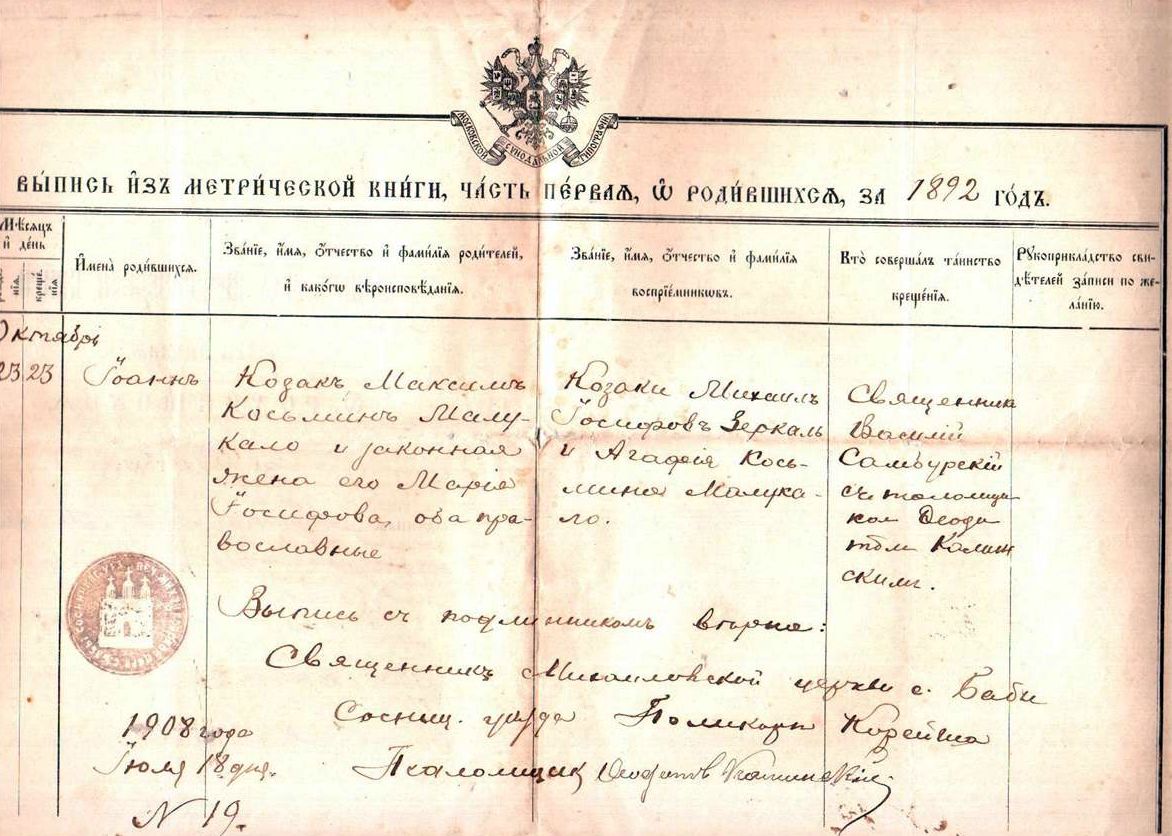 МОСКОВСКОЙ СУНОДАЛЬНОЙ ТИПОГРАФІИ
ВЫ́ПИСЬ И҆ЗЪ МЕТРИ́ЧЕСКОЙ КНИ́ГИ, ЧА́СТЬ ПЕ́РВАѦ, Ѡ҆ РОДИ́ВШИХСѦ, ЗА 1892 ГО́ДЪ.
Мѣ́сѧцъ
и҆ де́нь
креще́
нїѧ
И҆мена̀ роди́вшихсѧ.
Зва́нїе, и҆́мѧ, ѻ҆́тчество и҆ фами́лїѧ роди́телей,
и҆ како́гѡ вѣроисповѣ́данїѧ.
Зва́нїе, и҆́мѧ, ѻ҆́тчество и҆ фами́лїѧ
воспрїе́мникѡвъ.
Кто̀ соверша́лъ та́инство
креще́нїѧ.
Рꙋкоприкла́дство сви-
дѣ́телей за́писи по же-
ла́нїю.
Октября
23 23
Іоаннъ
Козакъ Максимъ
Косьминъ Малу-
кало и законная
жена его Марія
Іосифова, оба пра-
вославные
Козаки Михаилъ
Іосифовъ Зеркаль
и Агафія Кось-
мина Малука-
ло.
Священник
Василій
Самбурскій
съ псаломщи
ком Ѳеодо
том Калин
скимъ.
Выпись съ подлинникомъ вѣрна:
Священникъ Михаиловской церкви с. Бабы
Сосниц. уѣзда Поликарп Корейша
1908 года
Іюля 18 дня.
Псаломщик Ѳеодотъ Калинскій.
N 19.